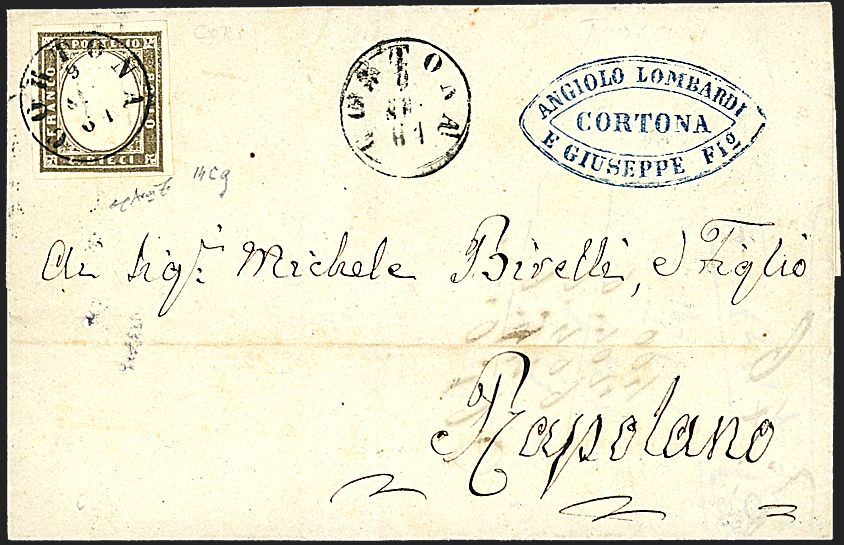 FRANCO POSTE BOLLO
C. DIECI
CORTONA
9
61
CORTONA
9
SET
61
ANGIOLO LOMBARDI
CORTONA
E GIUSEPPE Fio
14Cg
Ai Sigri Michele Birelli, e Figlio
Rapolano